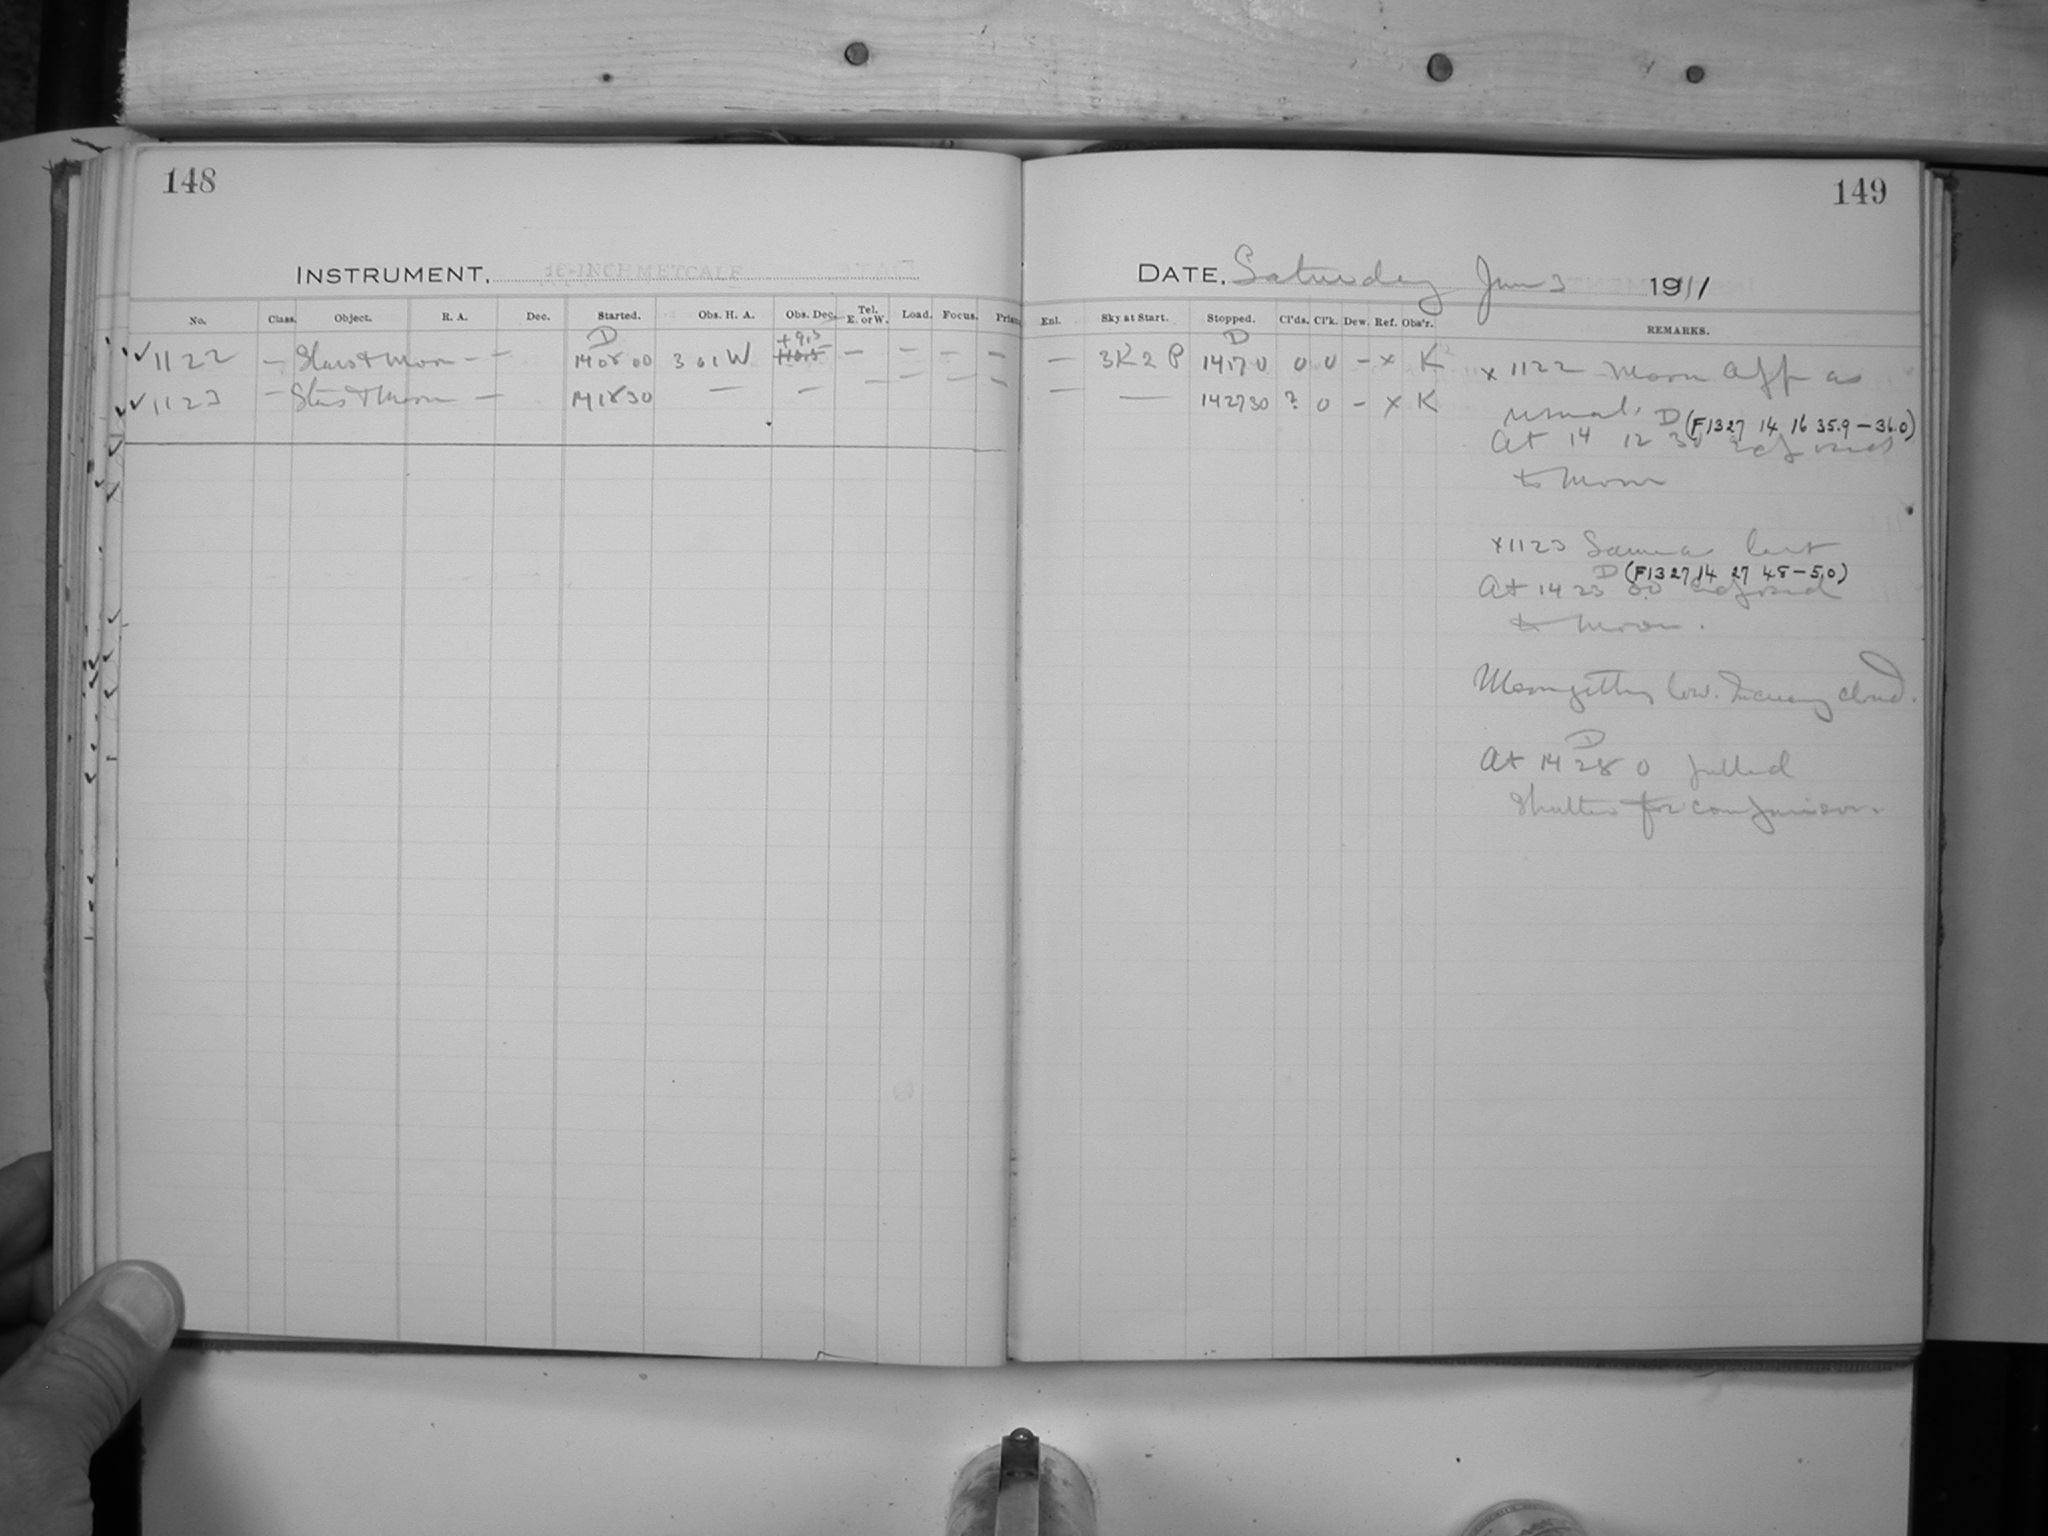 148
INSTRUMENT, 16-INCH METCALF
No. Class. Object. R. A. Dec. Started. Obs. H. A. Obs. Dec. Tel. E. or W. Load. Focus. Prism
D +9.5
✓ 1122 — Stars & Moon — — 14 08 00 3 01 W +10.5 — — — —
✓ 1123 — Stars & Moon — 14 18 30 — — — — — —
149
DATE, Saturday June 3 1911
Enl. Sky at Start. Stopped. Cl'ds. Cl'k. Dew. Ref. Obs'r. REMARKS.
D
— 3K2P 14 17 0 0 0 — x K
— — 14 27 30 ? 0 — x K
x 1122 Moon app as
usual. D (F1327 14 16 35.9 – 36.0)
At 14 12 30
to Moon
x 1123 Same as last
D (F1327 14 27 4.8 – 5.0)
At 14 23 00
to Moon.
Moon getting low. cloud.
D
At 14 28 0 pulled
Shutter for comparison.